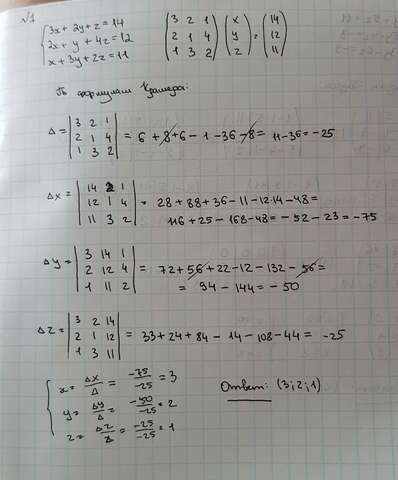 √1
{ 3x + 2y + z = 14
2x + y + 4z = 12
x + 3y + 2z = 11
( 3 2 1 ) ( x ) = ( 14 )
( 2 1 4 ) ( y ) ( 12 )
( 1 3 2 ) ( z ) ( 11 )
По формулам Крамера:
Δ = | 3 2 1 | 2 1 4 | 1 3 2 | = 6 + 8 + 6 - 1 - 36 - 8 = 11 - 36 = -25
Δx = | 14 2 1 | 12 1 4 | 11 3 2 | = 28 + 88 + 36 - 11 - 12·14 - 48 =
116 + 25 - 168 - 48 = -52 - 23 = -75
Δy = | 3 14 1 | 2 12 4 | 1 11 2 | = 72 + 56 + 22 - 12 - 132 - 56 =
= 94 - 144 = -50
Δz = | 3 2 14 | 2 1 12 | 1 3 11 | = 33 + 24 + 84 - 14 - 108 - 44 = -25
{ x = Δx/Δ = -75/-25 = 3
y = Δy/Δ = -50/-25 = 2
z = Δz/Δ = -25/-25 = 1
Ответ: (3; 2; 1)